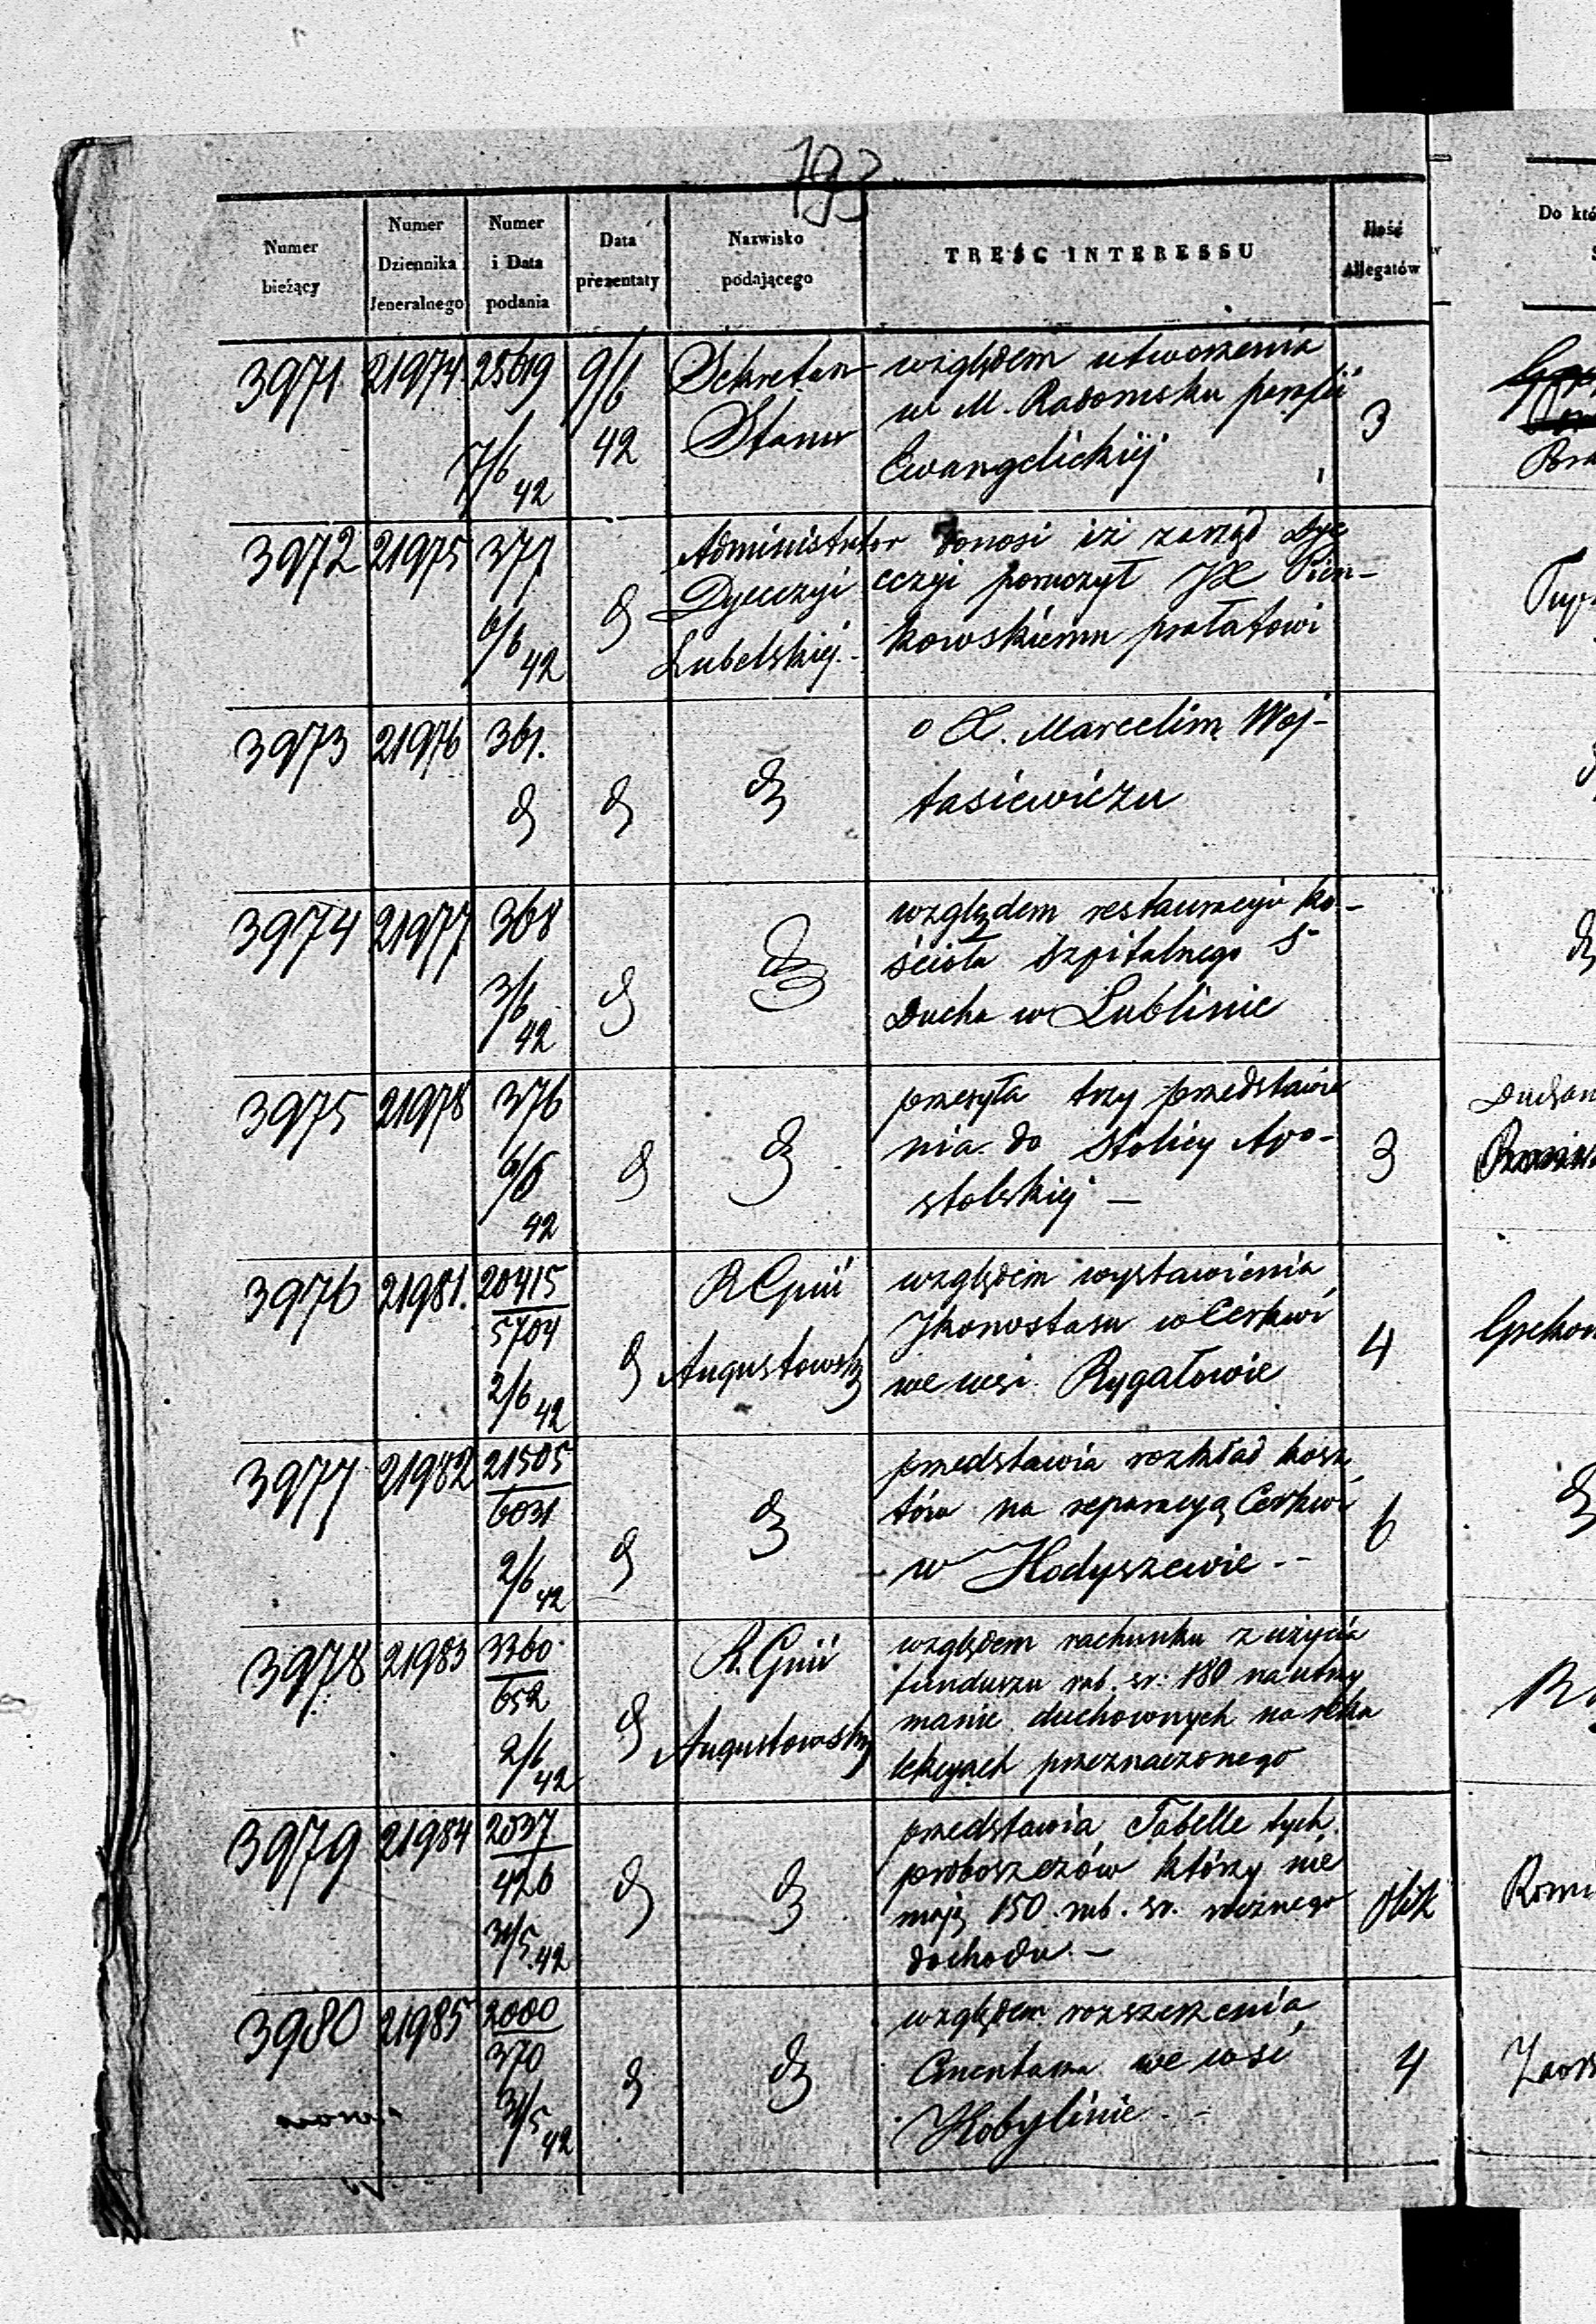 193
Numer bieżący
Numer Dziennika Jeneralnego
Numer i Data podania
Data prezentaty
Nazwisko podającego
TREŚC INTERESSU
Ilość Allegatów
Do któ
3971 21974 25619 7/6 42 9/6 42
Sekretarz
Stanu
względem utworzenia
w M. Radomsku parafii
Ewangelickiej
3
3972 21975 377 6/6 42 d
Administrator
Dyecezyi
Lubelskiej
donosi iż zarząd Dye
cezyi poruczył JX Pień-
kowskiemu prałatowi
3973 21976 361. d d d
o X. Marcelim Woj-
tasiewiczu
3974 21977 368 3/6 42 d d
względem restauracyi ko-
ścioła szpitalnego S
Ducha w Lublinie
3975 21978 376 6/6 42 d d
przesyła trzy przedstawie
nia do Stolicy Apo-
stolskiej —
3
3976 21981. 20415 5704 2/6 42 d
R Gnii
Augustowski
względem wystawienia
Ikonostasu w Cerkwi
we wsi Rygałowie
4
3977 21982 21505 6031 2/6 42 d d
przedstawia rozkład kosz
tów na reparacyą Cerkwi
w Hodyszewie --
6
3978 21983 3360 652 2/6 42 d
R. Gnii
Augustowski
względem rachunku z użycia
funduszu rub. sr: 180 na utrzy
manie duchownych na reko
lekcyach przeznaczonego
3979 21984 2037 426 31/5 42 d d
przedstawia Tabelle tych
proboszczów którzy nie
mają 150 rub. sr. rocznego
dochodu. —
3980 21985 2080 370 31/5 42 d d
względem rozszerzenia
Cmentarza we wsi
Kobylinie
4